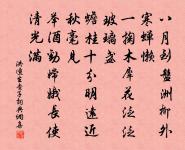 八月到盤洲柳外
寒蟬懶
一掬木犀花泛泛
玻璃盞
蟾桂十分明遠近
秋毫見
舉酒勸嫦娥長使
清光滿
洪適生查子詞典網